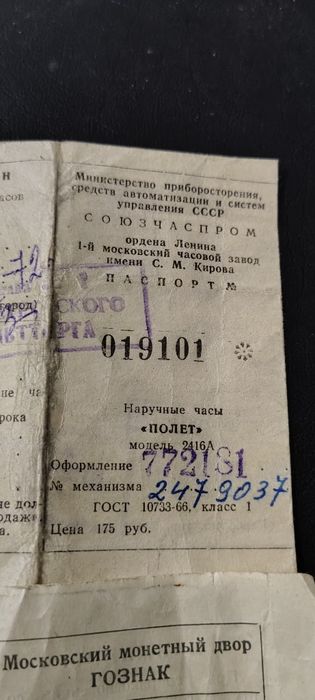 Министерство приборосторения,
средств автоматизации и систем
управления СССР
СОЮЗЧАСПРОМ
ордена Ленина
1-й московский часовой завод
имени С. М. Кирова
ПАСПОРТ №
019101
Наручные часы
«ПОЛЕТ»
модель 2416А
Оформление 772181
№ механизма 2479037
ГОСТ 10733-66, класс 1
Цена 175 руб.
Н
асов
72
город)
СКОГО
ТОРГА
не ча
рока
не дол-
одаже,
а.
Московский монетный двор
ГОЗНАК